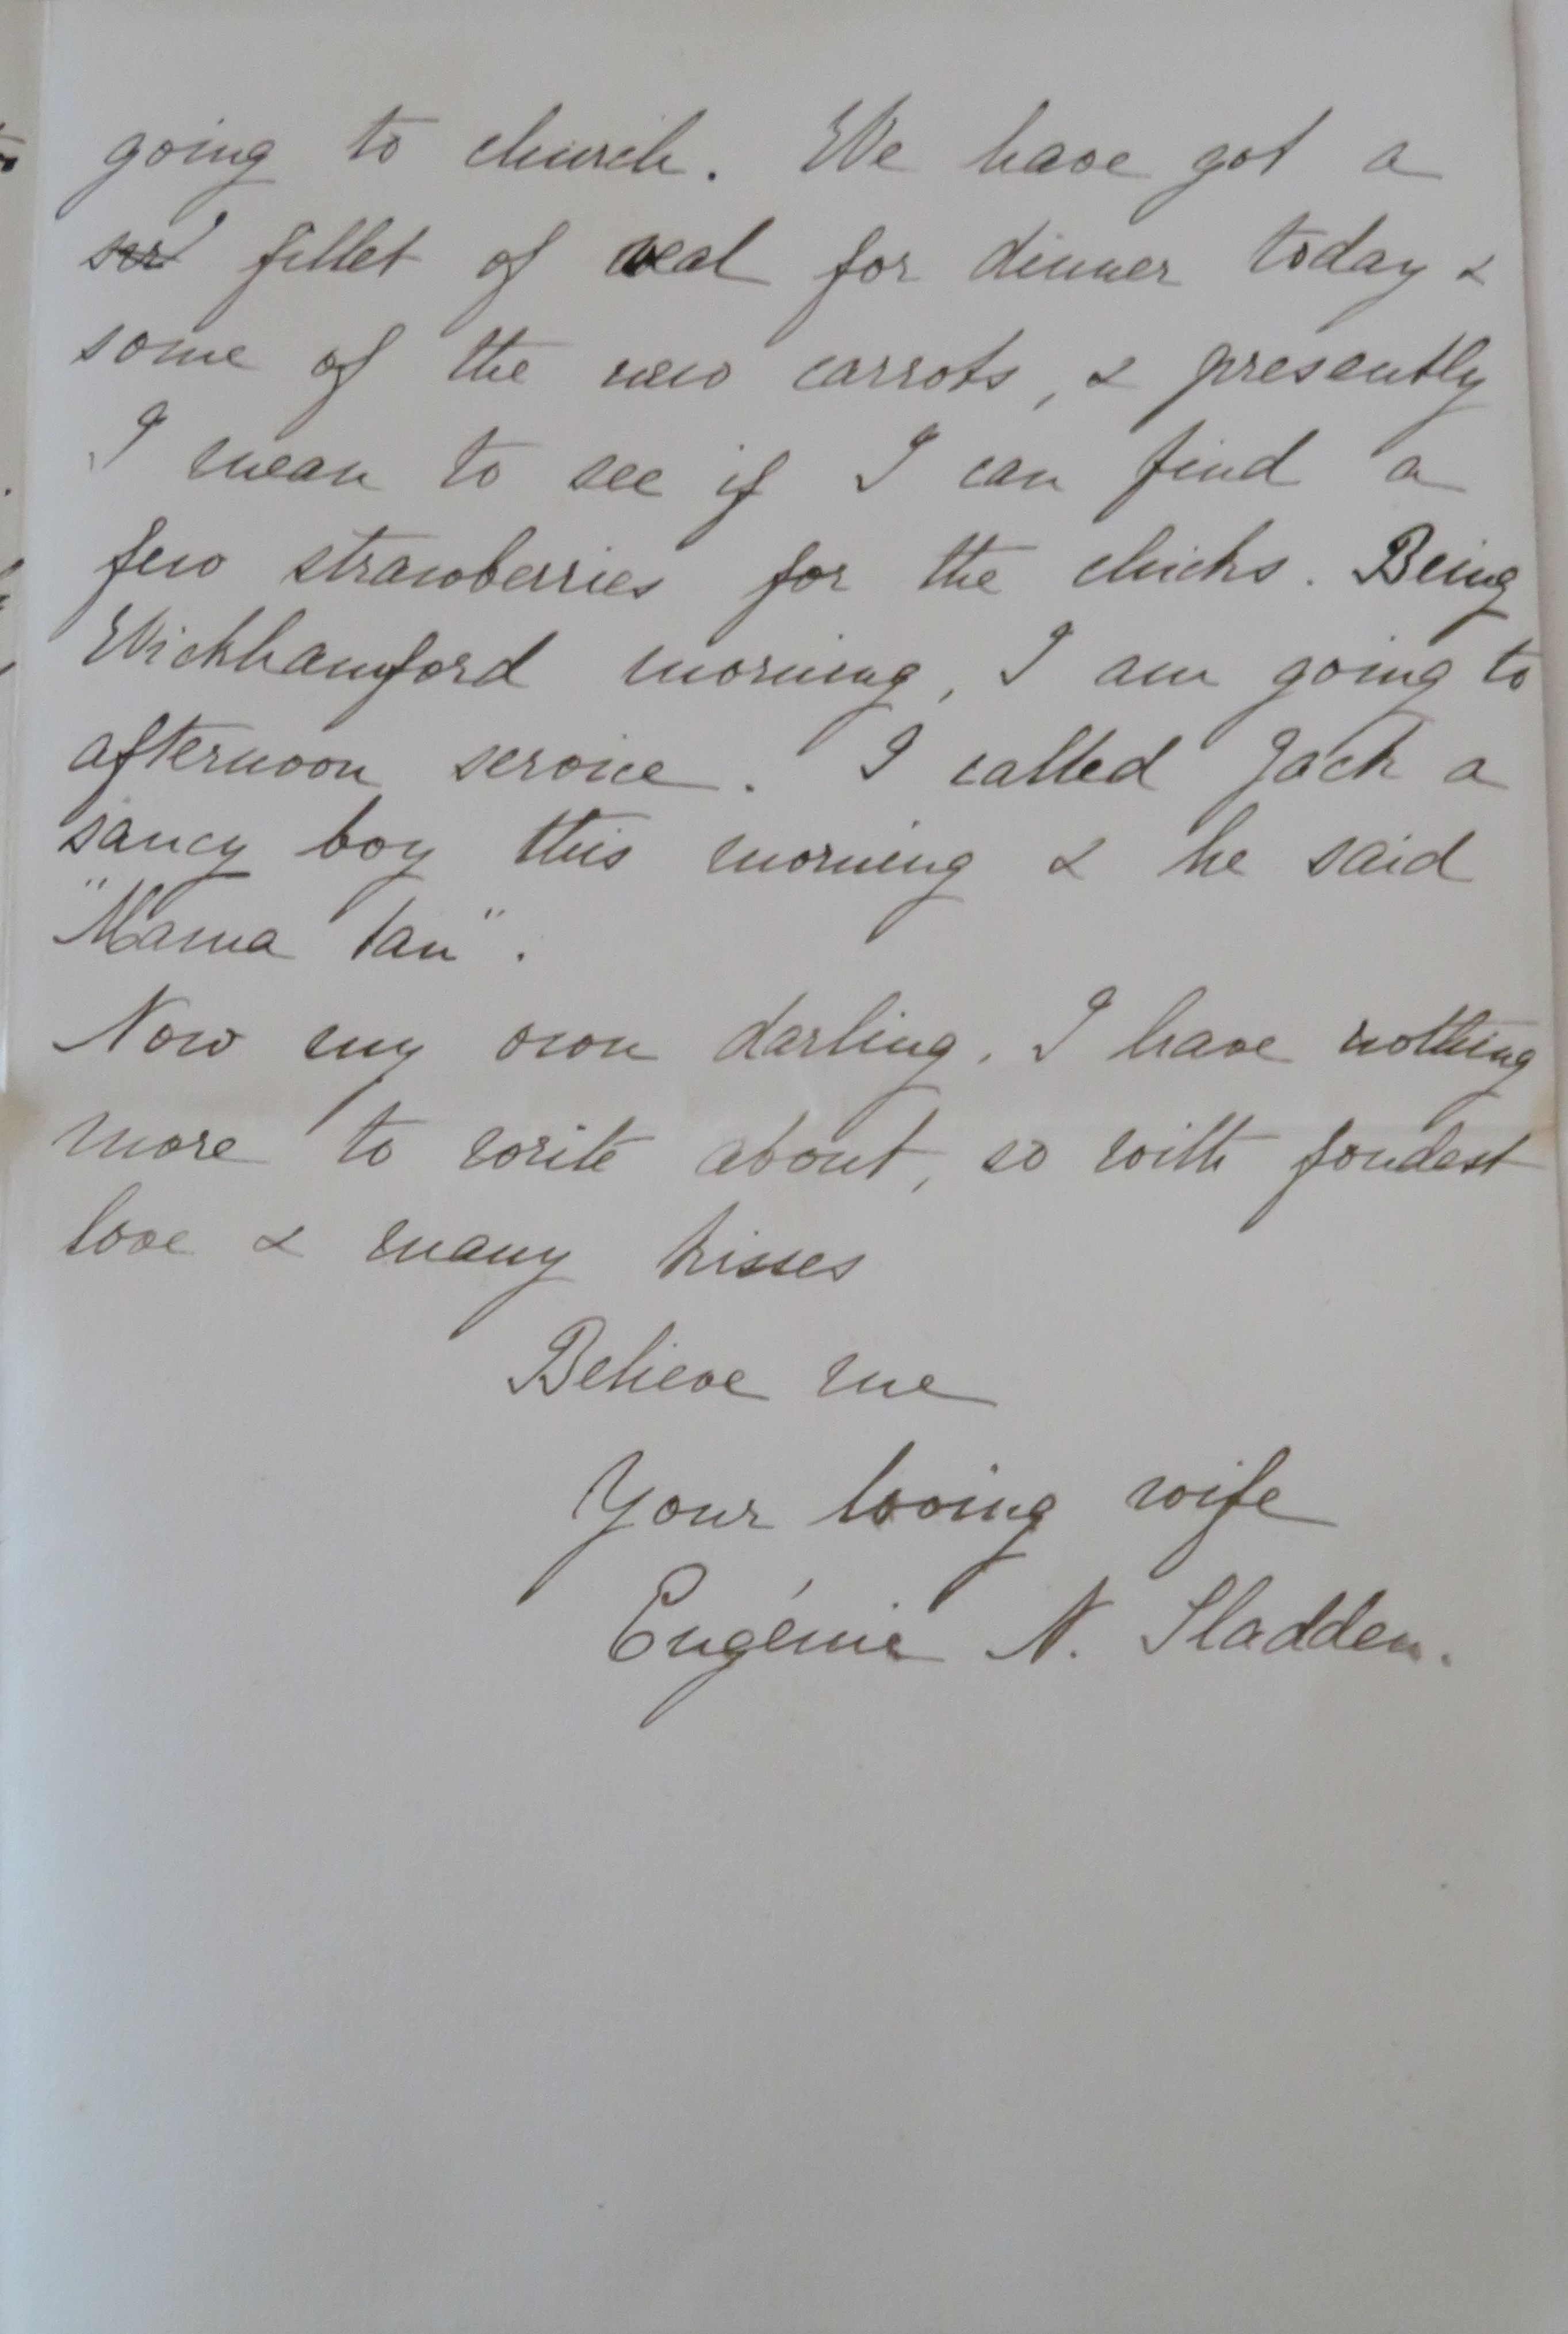 going to church. We have got a
fillet of veal for dinner today &
some of the new carrots, & presently
I mean to see if I can find a
few strawberries for the chicks. Being
Wickhamford morning, I am going to
afternoon service. I called Jack a
saucy boy this morning & he said
"Mama tau".
Now my own darling, I have nothing
more to write about, so with fondest
love & many kisses
Believe me
Your loving wife
Eugénie N. Sladden.